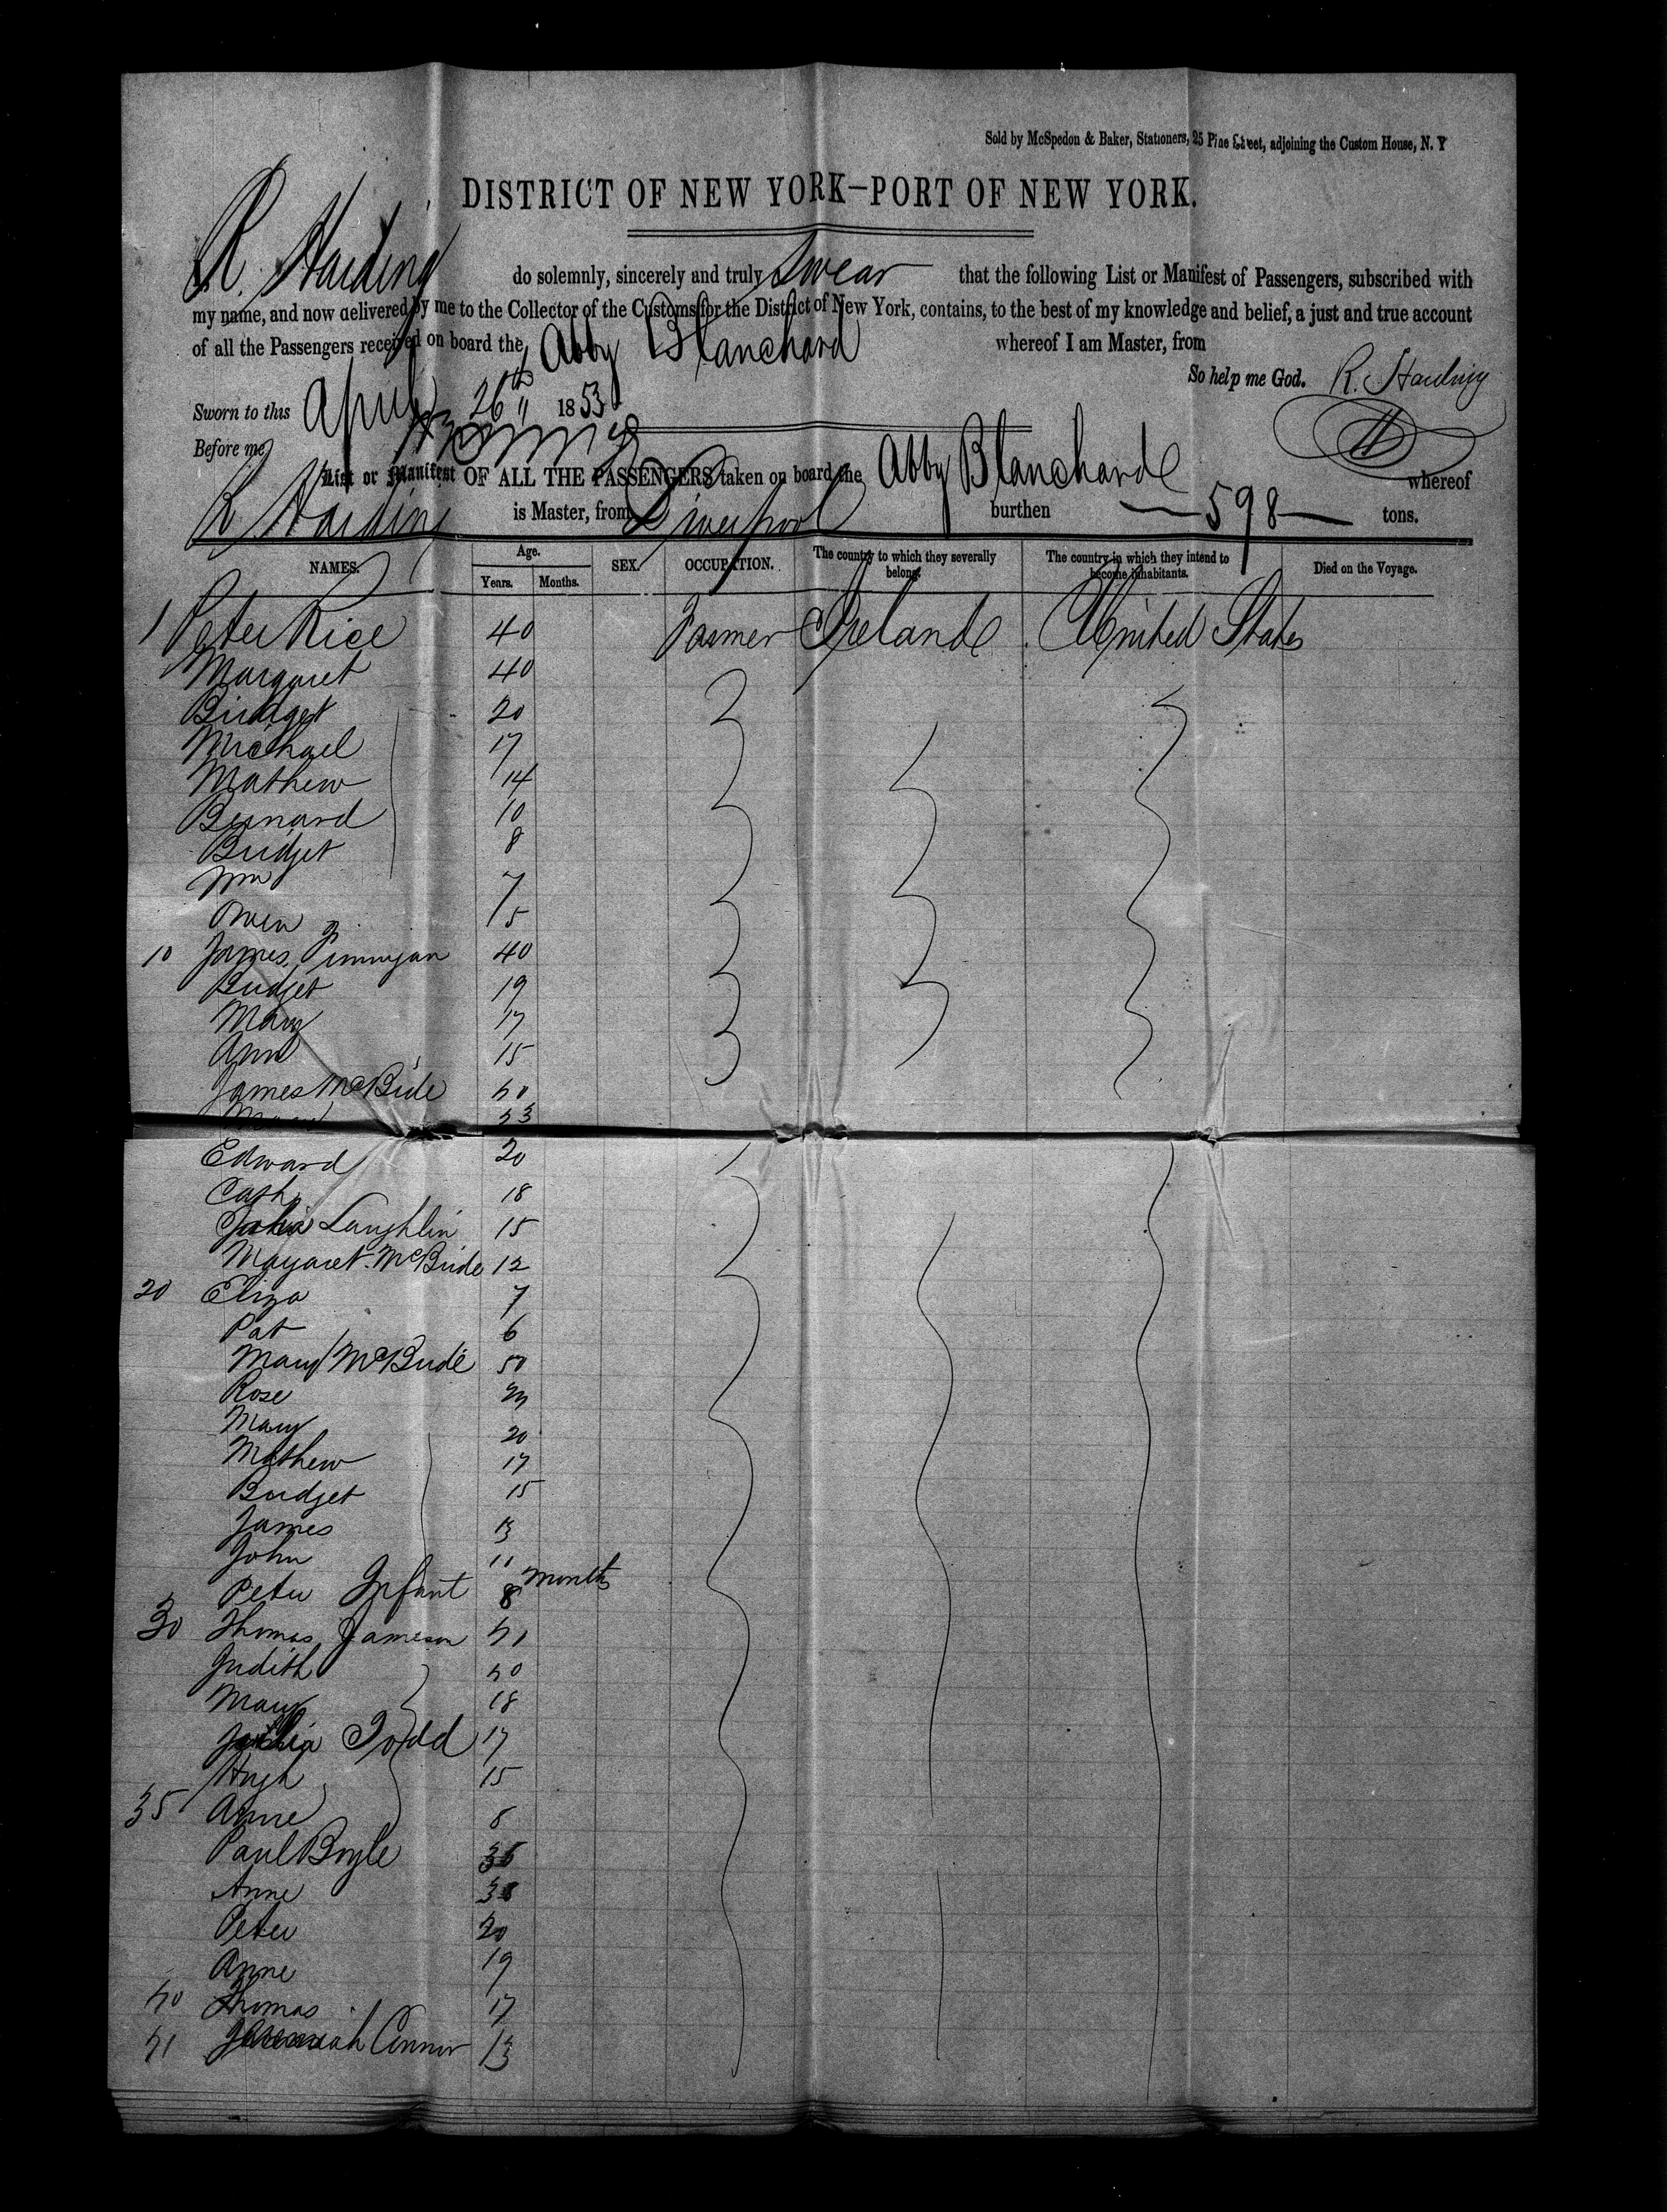 Sold by McSpedon & Baker, Stationers, 25 Pine Street, adjoining the Custom House, N. Y
DISTRICT OF NEW YORK—PORT OF NEW YORK.
R. Harding do solemnly, sincerely and truly Swear that the following List or Manifest of Passengers, subscribed with
my name, and now delivered by me to the Collector of the Customs for the District of New York, contains, to the best of my knowledge and belief, a just and true account
of all the Passengers received on board the Abby Blanchard whereof I am Master, from
So help me God. R. Harding
Sworn to this April 26th 1853
Before me
List or Manifest OF ALL THE PASSENGERS taken on board the Abby Blanchard whereof
R. Harding is Master, from Liverpool burthen 598 tons.
NAMES. Age. Years. Months. SEX. OCCUPATION. The country to which they severally belong. The country in which they intend to become inhabitants. Died on the Voyage.
1 Peter Rice 40 Farmer Ireland United States
Margaret 40
Bridget 20
Michael 17
Mathew 14
Bernard 10
Bridget 8
Wm 7
Owen 5
10 James Finnigan 40
Bridget 19
Mary 17
Ann 15
James McBride 40
Edward 20
Cath 18
Laughlin 15
Margaret McBride 12
20 Eliza 7
Pat 6
Mary McBride 50
Rose
Mary 20
Mathew 17
Bridget 15
James 13
John 11
Peter Infant 8 months
30 Thomas Jameson 41
Judith 40
Mary 18
Todd 17
Hugh 15
35 Anne 8
Paul Boyle
Anne
Peter 20
Anne 19
40 Thomas 17
41 Connor 13